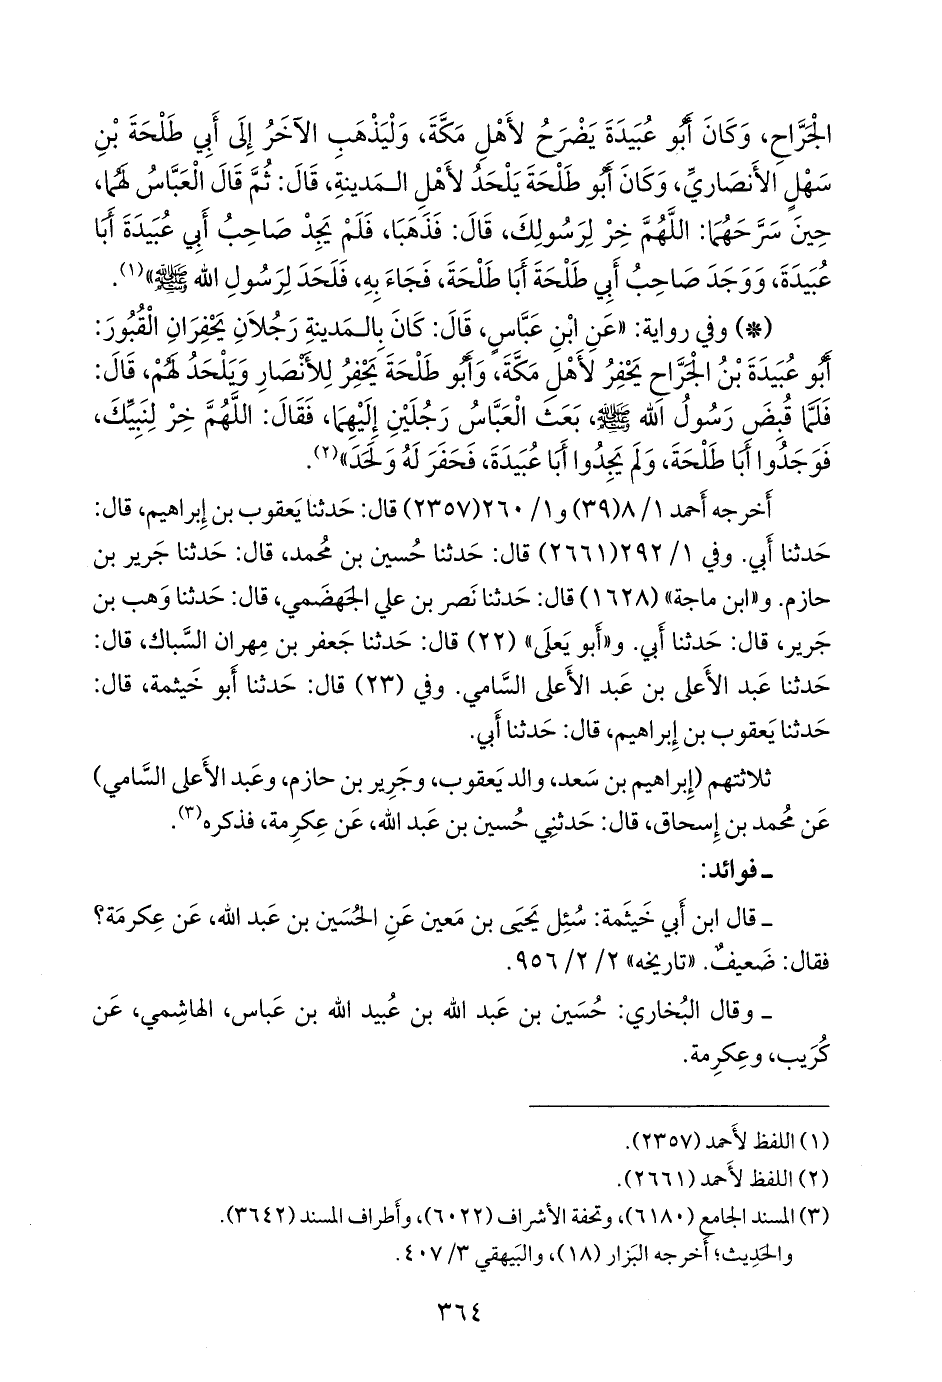 الجَرَّاحِ، وَكَانَ أَبُو عُبَيْدَةَ يَضْرَحُ لأَهْلِ مَكَّةَ، وَلْيَذْهَبِ الآخَرُ إِلَى أَبِي طَلْحَةَ بْنِ
سَهْلٍ الأَنصَارِيِّ، وَكَانَ أَبُو طَلْحَةَ يَلْحَدُ لأَهْلِ الـمَدينةِ، قَالَ: ثُمَّ قَالَ الْعَبَّاسُ لَهُمَا،
حِينَ سَرَّحَهُمَا: اللَّهُمَّ خِرْ لِرَسُولِكَ، قَالَ: فَذَهَبَا، فَلَمْ يَجِدْ صَاحِبُ أَبِي عُبَيْدَةَ أَبَا
عُبَيْدَةَ، وَوَجَدَ صَاحِبُ أَبِي طَلْحَةَ أَبَا طَلْحَةَ، فَجَاءَ بِهِ، فَلَحَدَ لِرَسُولِ الله ﷺ»(١).
(*) وفي رواية: «عَنِ ابْنِ عَبَّاسٍ، قَالَ: كَانَ بِالـمَدينةِ رَجُلاَنِ يَحْفِرَانِ الْقُبُورَ:
أَبُو عُبَيْدَةَ بْنُ الجَرَّاحِ يَحْفِرُ لأَهْلِ مَكَّةَ، وَأَبُو طَلْحَةَ يَحْفِرُ لِلأَنْصَارِ وَيَلْحَدُ لَهُمْ، قَالَ:
فَلَمَّا قُبِضَ رَسُولُ الله ﷺ، بَعَثَ الْعَبَّاسُ رَجُلَيْنِ إِلَيْهِمَا، فَقَالَ: اللَّهُمَّ خِرْ لِنَبِيِّكَ،
فَوَجَدُوا أَبَا طَلْحَةَ، وَلَم يَجِدُوا أَبَا عُبَيْدَةَ، فَحَفَرَ لَهُ وَلَحَدَ»(٢).
أَخرجه أَحمد ١/ ٨(٣٩) و١/ ٢٦٠(٢٣٥٧) قال: حَدثنا يَعقوب بن إِبراهيم، قال:
حَدثنا أَبي. وفي ١/ ٢٩٢(٢٦٦١) قال: حَدثنا حُسين بن مُحمد، قال: حَدثنا جَرير بن
حازم. و«ابن ماجة» (١٦٢٨) قال: حَدثنا نَصر بن علي الجَهضَمي، قال: حَدثنا وَهب بن
جَرير، قال: حَدثنا أَبي. و«أَبو يَعلَى» (٢٢) قال: حَدثنا جَعفر بن مِهران السَّباك، قال:
حَدثنا عَبد الأَعلى بن عَبد الأَعلى السَّامي. وفي (٢٣) قال: حَدثنا أَبو خَيثمة، قال:
حَدثنا يَعقوب بن إِبراهيم، قال: حَدثنا أَبي.
ثلاثتهم (إِبراهيم بن سَعد، والد يَعقوب، وجَرِير بن حازم، وعَبد الأَعلى السَّامي)
عَن مُحمد بن إِسحاق، قال: حَدثني حُسين بن عَبد الله، عَن عِكرِمة، فذكره(٣).
ـ فوائد:
ـ قال ابن أَبي خَيثَمة: سُئِل يَحيَى بن مَعين عَنِ الحُسَين بن عَبد الله، عَن عِكرمَة؟
فقال: ضَعيفٌ. «تاريخه» ٢/ ٢/ ٩٥٦.
ـ وقال البُخاري: حُسَين بن عَبد الله بن عُبيد الله بن عَباس، الهاشِمي، عَن
كُرَيب، وعِكرِمة.
(١) اللفظ لأَحمد (٢٣٥٧).
(٢) اللفظ لأَحمد (٢٦٦١).
(٣) المسند الجامع (٦١٨٠)، وتحفة الأشراف (٦٠٢٢)، وأَطراف المسند (٣٦٤٢).
والحَدِيث؛ أَخرجه البَزار (١٨)، والبَيهقي ٣/ ٤٠٧.
٣٦٤